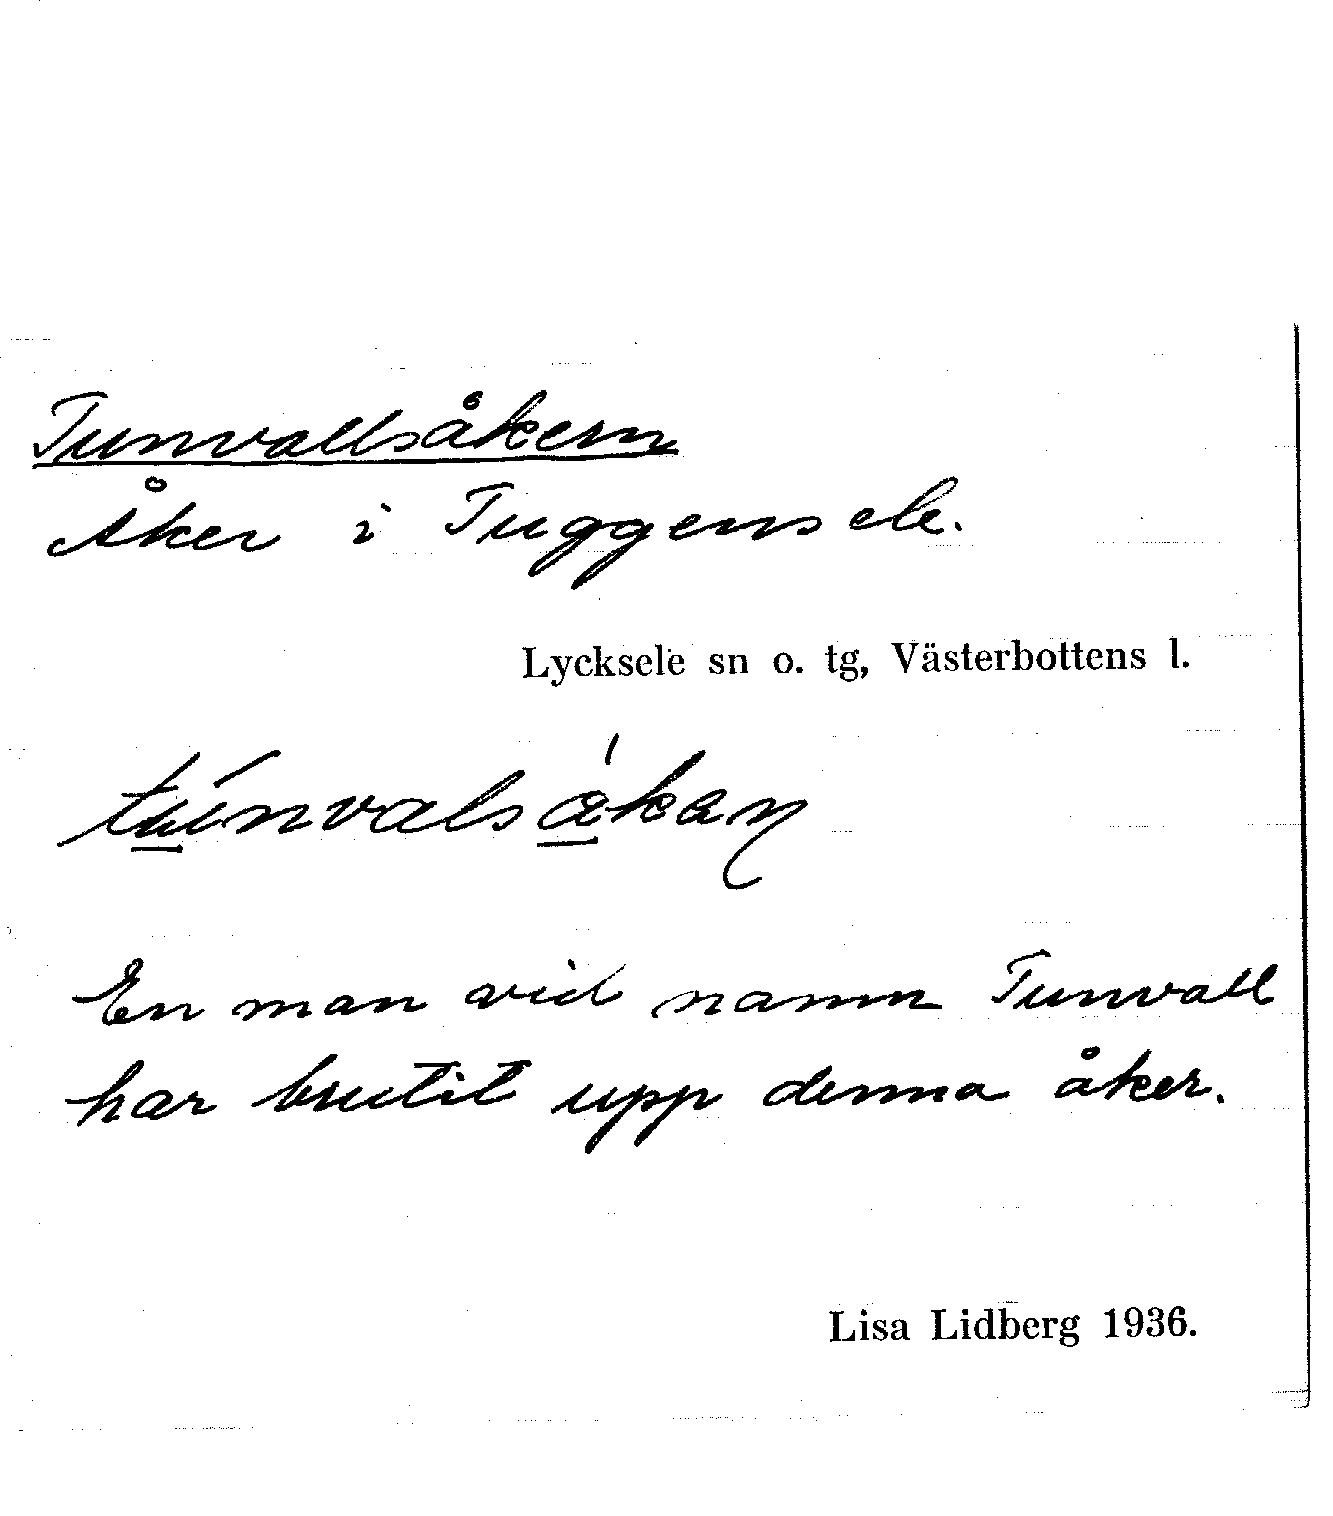 Tunvallsåkern
Åker i Tuggensele.
Lycksele sn o. tg, Västerbottens l.
En man vid namn Tunvall
har brutit upp denna åker.
Lisa Lidberg 1936.